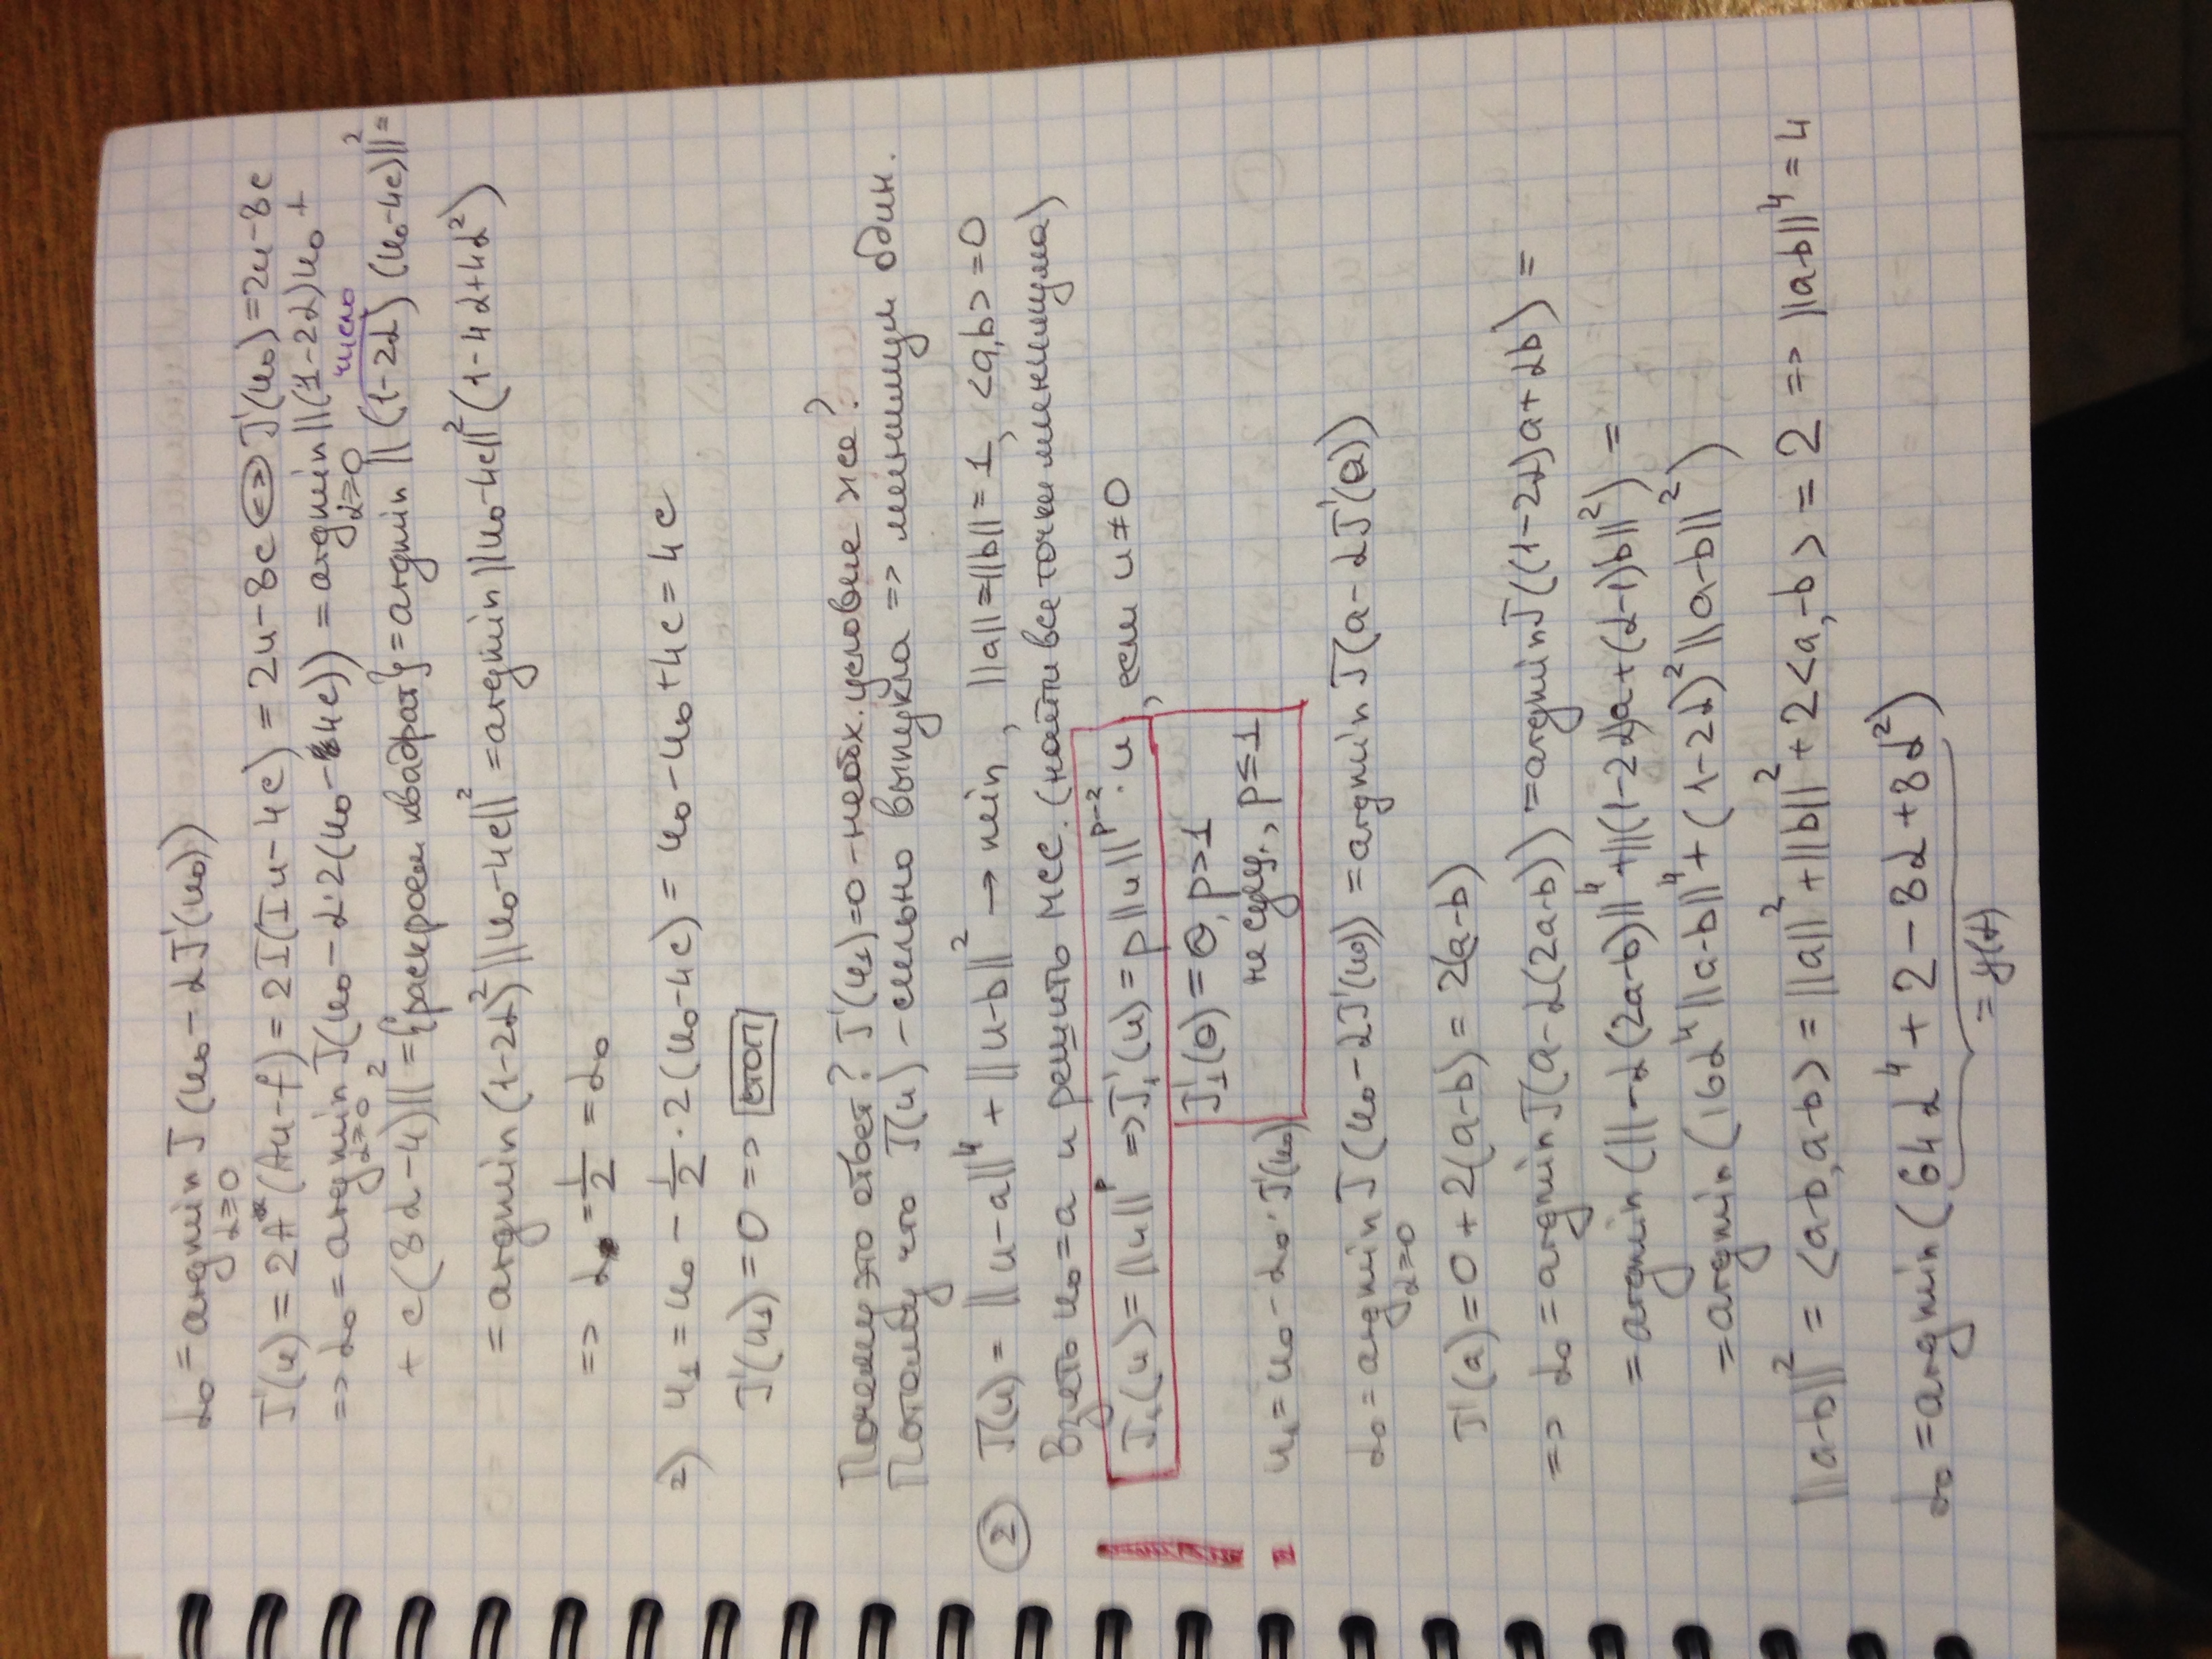 α₀ = argmin J(u₀ - αJ'(u₀))
α≥0
J'(u) = 2A*(Au-f) = 2I(Iu-4e) = 2u-8e <=> J'(u₀) = 2u-8e
=> α₀ = argmin J(u₀ - α·2(u₀-4e)) = argmin ||(1-2α)u₀ +
α≥0 α≥0
число
+ e(8α-4)||² = {раскроем квадрат} = argmin ||(1-2α)(u₀-4e)||² =
= argmin (1-2α)² ||u₀-4e||² = argmin ||u₀-4e||² (1-4α+4α²)
=> α = 1/2 = α₀
2) u₁ = u₀ - 1/2 · 2(u₀-4e) = u₀ - u₀ + 4e = 4e
J'(u₁) = 0 => стоп
Почему это ответ? J'(u₁)=0 - необх. условие же?
Потому что J(u) - сильно выпукла => минимум один.
② J(u) = ||u-a||⁴ + ||u-b||² → min, ||a||=||b||=1, <a,b>=0
Взять u₀=a и решить МСС. (найти все точки минимума)
J₁(u) = ||u||ᵖ => J₁'(u) = p||u||ᵖ⁻²·u, если u≠0
J₁'(θ) = θ, p>1
не сущ., p≤1
u₁ = u₀ - α₀·J'(u₀)
α₀ = argmin J(u₀ - αJ'(u₀)) = argmin J(a - αJ'(a))
α≥0
J'(a) = 0 + 2(a-b) = 2(a-b)
=> α₀ = argmin J(a - α(2a-b)) = argmin J((1-2α)a + αb) =
= argmin (||-α(2a-b)||⁴ + ||(1-2α)a + (α-1)b||²) =
= argmin (16α⁴||a-b||⁴ + (1-2α)²||a-b||²)
||a-b||² = <a-b, a-b> = ||a||² + ||b||² + 2<a,-b> = 2 => ||a-b||⁴ = 4
α₀ = argmin (64α⁴ + 2 - 8α + 8α²)
= y(α)